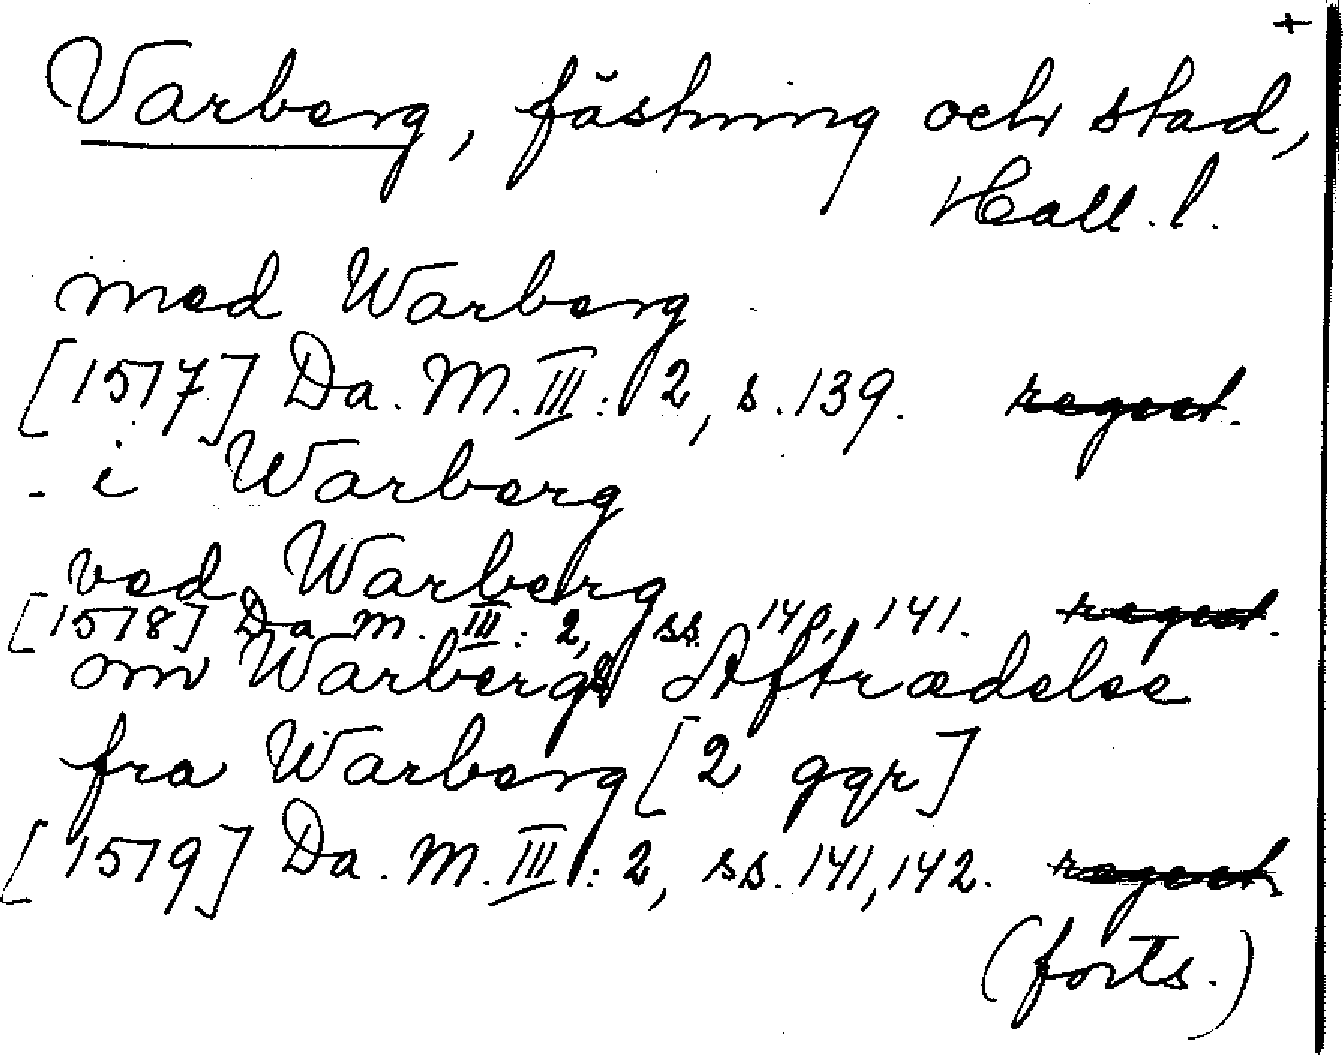 +
Varberg, fästning och stad,
Hall. l.
med Warberg
[1577] Da. M. III: 2, s. 139. regest.
- i Warberg
ved Warberg
[1578] Da. M. III: 2, ss. 140, 141. regest.
om Warbergs Aftrædelse
fra Warberg [2 ggr]
[1579] Da. M. III: 2, ss. 141, 142. regest
(forts.)